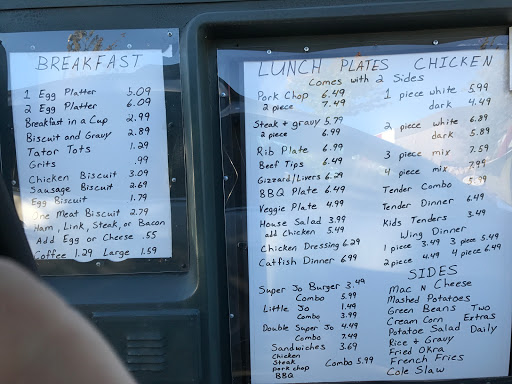 BREAKFAST
1 Egg Platter 5.09
2 Egg Platter 6.09
Breakfast in a Cup 2.99
Biscuit and Gravy 2.89
Tator Tots 1.29
Grits .99
Chicken Biscuit 3.09
Sausage Biscuit 2.69
Egg Biscuit 1.79
One Meat Biscuit 2.79
Ham, Link, Steak, or Bacon
Add Egg or Cheese .55
Coffee 1.29 Large 1.59
LUNCH PLATES CHICKEN
Comes with 2 Sides
Pork Chop 6.49
2 piece 7.49
Steak + gravy 5.79
2 piece 6.99
Rib Plate 6.99
Beef Tips 6.49
Gizzard/Livers 6.29
BBQ Plate 6.49
Veggie Plate 4.99
House Salad 3.99
add Chicken 5.49
Chicken Dressing 6.29
Catfish Dinner 6.99
1 piece white 5.99
dark 4.49
2 piece white 6.89
dark 5.89
3 piece mix 7.59
4 piece mix 7.99
Tender Combo 5.99
Tender Dinner 6.49
Kids Tenders 3.49
Wing Dinner
1 piece 3.49 3 piece 5.49
2 piece 4.49 4 piece 6.49
Super Jo Burger 3.49
Combo 5.99
Little Jo 1.49
Combo 3.99
Double Super Jo 4.49
Combo 7.49
Sandwiches 3.69
Chicken
Steak
pork chop Combo 5.99
BBQ
SIDES
Mac N Cheese
Mashed Potatoes
Green Beans Two
Cream Corn Extras
Potatoe Salad Daily
Rice + Gravy
Fried Okra
French Fries
Cole Slaw